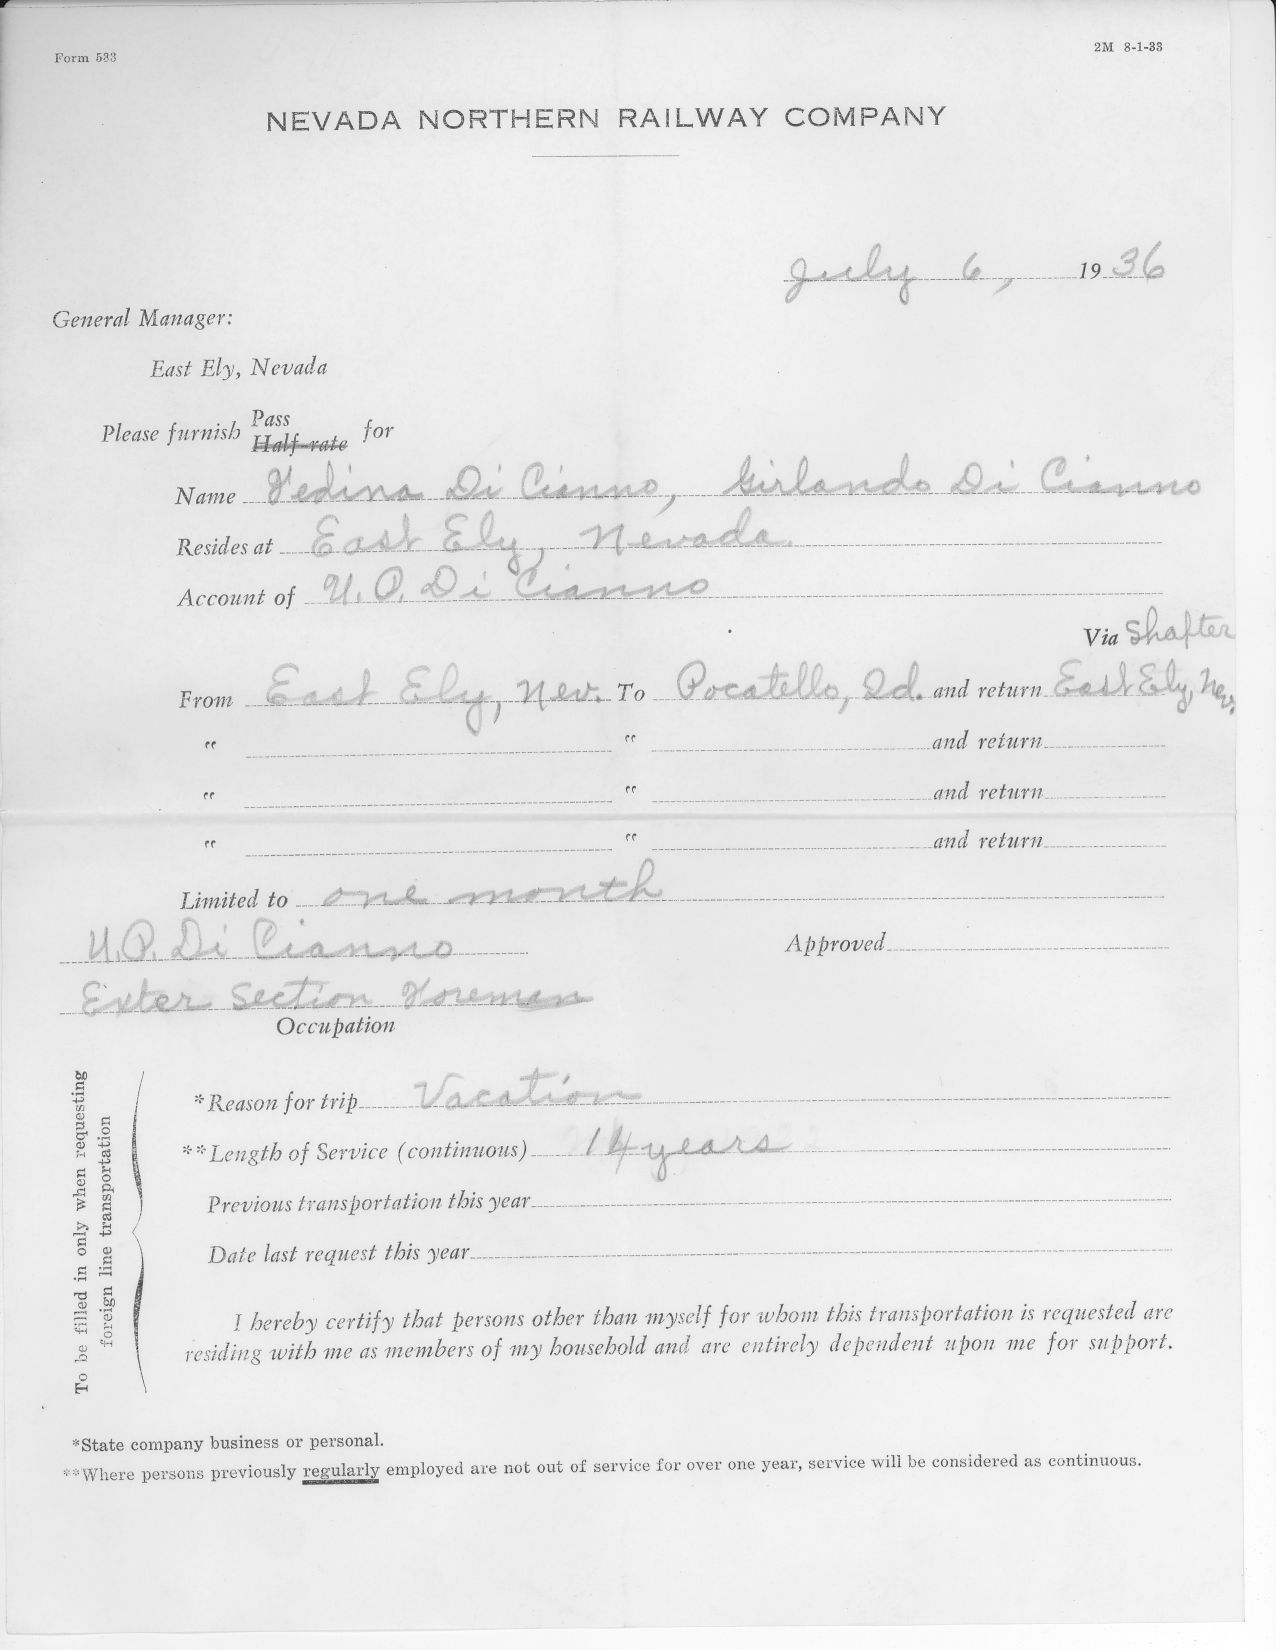 Form 533
2M 8-1-33
NEVADA NORTHERN RAILWAY COMPANY
July 6, 1936
General Manager:
East Ely, Nevada
Please furnish Pass Half-rate for
Name Vedina Di Cianno, Girlando Di Cianno
Resides at East Ely, Nevada.
Account of U. P. Di Cianno
Via Shafter
From East Ely, Nev. To Pocatello, Id. and return East Ely, Nev.
" " and return
" " and return
" " and return
Limited to one month
U. P. Di Cianno Approved
Exter Section Foreman
Occupation
To be filled in only when requesting
foreign line transportation
*Reason for trip Vacation
**Length of Service (continuous) 14 years
Previous transportation this year
Date last request this year
I hereby certify that persons other than myself for whom this transportation is requested are
residing with me as members of my household and are entirely dependent upon me for support.
*State company business or personal.
**Where persons previously regularly employed are not out of service for over one year, service will be considered as continuous.